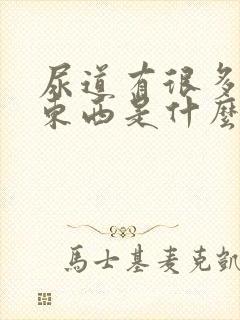 尿道有很多
東西是什麼
馬士基麦克凱